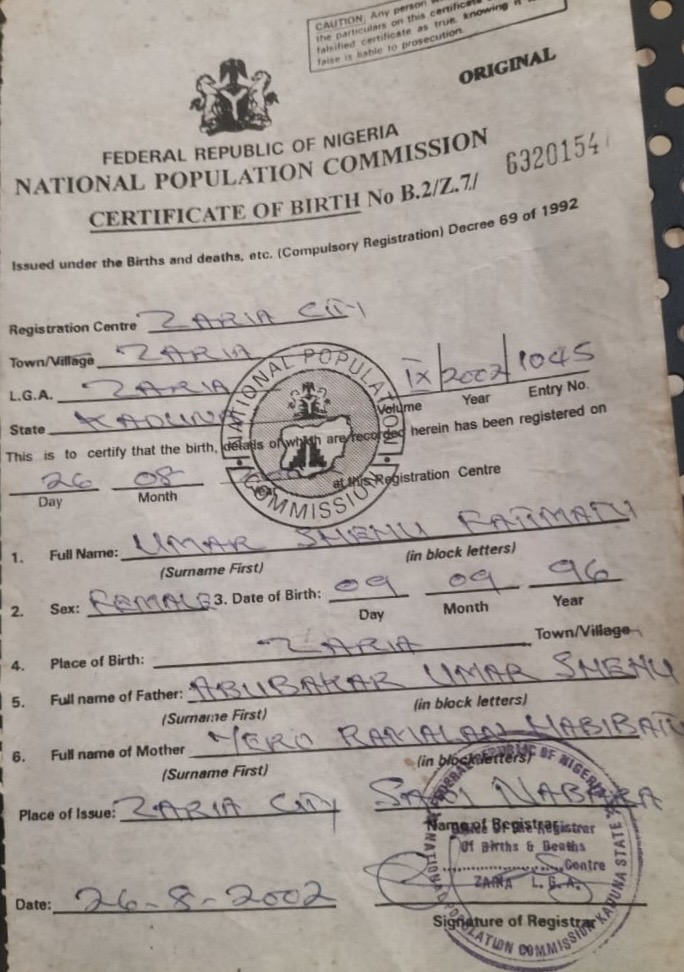 CAUTION: Any person
the particulars on this certificate
falsified certificate as true, knowing it
false is liable to prosecution.
ORIGINAL
FEDERAL REPUBLIC OF NIGERIA
NATIONAL POPULATION COMMISSION
CERTIFICATE OF BIRTH No B.2/Z.7/ 6320154
Issued under the Births and deaths, etc. (Compulsory Registration) Decree 69 of 1992
Registration Centre ZARIA CITY
Town/Village ZARIA
L.G.A. ZARIA
IX 2002 1045
Volume Year Entry No.
State KADUNA
NATIONAL POPULATION COMMISSION
This is to certify that the birth, details of which are recorded herein has been registered on
26 08 at this Registration Centre
Day Month
1. Full Name: UMAR SHEHU FATIMATU
(Surname First) (in block letters)
2. Sex: FEMALE 3. Date of Birth: 09 09 96
Day Month Year
4. Place of Birth: ZARIA Town/Village
5. Full name of Father: ABUBAKAR UMAR SHEHU
(Surname First) (in block letters)
6. Full name of Mother YERO RAMALAN HABIBATU
(Surname First) (in block letters)
Place of Issue: ZARIA CITY
Name of Registrar
FEDERAL REPUBLIC OF NIGERIA
Office of the Registrar
Of Births & Deaths
Centre
ZARIA L.G.A.
NATIONAL POPULATION COMMISSION KADUNA STATE
Date: 26-8-2002
Signature of Registrar